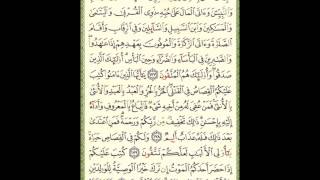 وَٱلنَّبِيِّـۧنَ وَءَاتَى ٱلْمَالَ عَلَىٰ حُبِّهِۦ ذَوِى ٱلْقُرْبَىٰ وَٱلْيَتَـٰمَىٰ
وَٱلْمَسَـٰكِينَ وَٱبْنَ ٱلسَّبِيلِ وَٱلسَّآئِلِينَ وَفِى ٱلرِّقَابِ وَأَقَامَ
ٱلصَّلَوٰةَ وَءَاتَى ٱلزَّكَوٰةَ وَٱلْمُوفُونَ بِعَهْدِهِمْ إِذَا عَـٰهَدُوا۟ ۖ
وَٱلصَّـٰبِرِينَ فِى ٱلْبَأْسَآءِ وَٱلضَّرَّآءِ وَحِينَ ٱلْبَأْسِ ۗ أُو۟لَـٰٓئِكَ ٱلَّذِينَ
صَدَقُوا۟ ۖ وَأُو۟لَـٰٓئِكَ هُمُ ٱلْمُتَّقُونَ ١٧٧ يَـٰٓأَيُّهَا ٱلَّذِينَ ءَامَنُوا۟ كُتِبَ
عَلَيْكُمُ ٱلْقِصَاصُ فِى ٱلْقَتْلَى ۖ ٱلْحُرُّ بِٱلْحُرِّ وَٱلْعَبْدُ بِٱلْعَبْدِ وَٱلْأُنثَىٰ
بِٱلْأُنثَىٰ ۚ فَمَنْ عُفِىَ لَهُۥ مِنْ أَخِيهِ شَىْءٌ فَٱتِّبَاعٌۢ بِٱلْمَعْرُوفِ وَأَدَآءٌ
إِلَيْهِ بِإِحْسَـٰنٍ ۗ ذَٰلِكَ تَخْفِيفٌ مِّن رَّبِّكُمْ وَرَحْمَةٌ ۗ فَمَنِ ٱعْتَدَىٰ
بَعْدَ ذَٰلِكَ فَلَهُۥ عَذَابٌ أَلِيمٌ ١٧٨ وَلَكُمْ فِى ٱلْقِصَاصِ حَيَوٰةٌ
يَـٰٓأُو۟لِى ٱلْأَلْبَـٰبِ لَعَلَّكُمْ تَتَّقُونَ ١٧٩ كُتِبَ عَلَيْكُمْ
إِذَا حَضَرَ أَحَدَكُمُ ٱلْمَوْتُ إِن تَرَكَ خَيْرًا ٱلْوَصِيَّةُ لِلْوَٰلِدَيْنِ